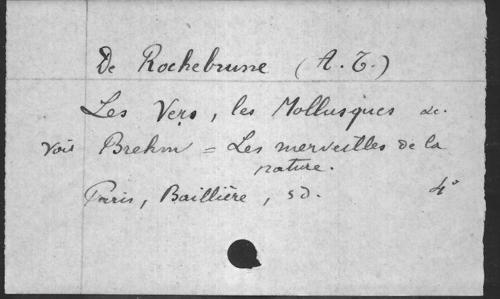 De Rochebrune (A. T.)
Les Vers, les Mollusques &c.
voir Brehm = Les merveilles de la
nature.
Paris, Baillière, sd. 4°